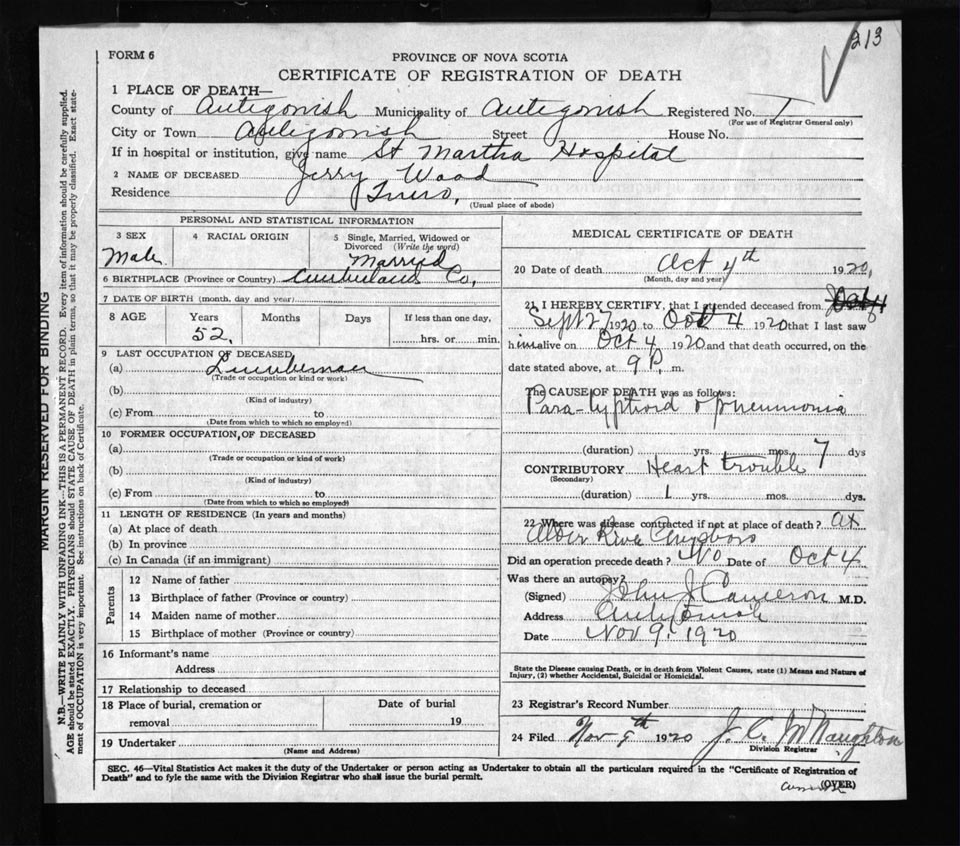 213
FORM 6
PROVINCE OF NOVA SCOTIA
CERTIFICATE OF REGISTRATION OF DEATH
1 PLACE OF DEATH—
County of Antigonish Municipality of Antigonish Registered No.
(For use of Registrar General only)
City or Town Antigonish Street House No.
If in hospital or institution, give name St Martha Hospital
2 NAME OF DECEASED Jerry Wood
Residence Truro,
(Usual place of abode)
MARGIN RESERVED FOR BINDING
N.B.—WRITE PLAINLY WITH UNFADING INK—THIS IS A PERMANENT RECORD. Every item of information should be carefully supplied.
AGE should be stated EXACTLY. PHYSICIANS should STATE CAUSE OF DEATH in plain terms, so that it may be properly classified. Exact state-
ment of OCCUPATION is very important. See instructions on back of Certificate.
PERSONAL AND STATISTICAL INFORMATION
3 SEX
Male
4 RACIAL ORIGIN
5 Single, Married, Widowed or
Divorced (Write the word)
Married
6 BIRTHPLACE (Province or Country) Cumberland Co,
7 DATE OF BIRTH (month, day and year)
8 AGE Years Months Days If less than one day,
52. hrs. or min.
9 LAST OCCUPATION OF DECEASED
(a) Lumberman
(Trade or occupation or kind or work)
(b)
(Kind of industry)
(c) From to
(Date from which to which so employed)
10 FORMER OCCUPATION, OF DECEASED
(a)
(Trade or occupation or kind of work)
(b)
(Kind of industry)
(c) From to
(Date from which to which so employed)
11 LENGTH OF RESIDENCE (In years and months)
(a) At place of death
(b) In province
(c) In Canada (if an immigrant)
Parents
12 Name of father
13 Birthplace of father (Province or country)
14 Maiden name of mother
15 Birthplace of mother (Province or country)
16 Informant's name
Address
17 Relationship to deceased
18 Place of burial, cremation or Date of burial
removal 19
19 Undertaker
(Name and Address)
MEDICAL CERTIFICATE OF DEATH
20 Date of death Oct 4th 1920,
(Month, day and year)
21 I HEREBY CERTIFY, that I attended deceased from
Sept 27 1920 to Oct 4 1920 that I last saw
him alive on Oct 4 1920 and that death occurred, on the
date stated above, at 9 P. m.
The CAUSE OF DEATH was as follows:
Para-typhoid & pneumonia
(duration) yrs. mos. 7 dys
CONTRIBUTORY Heart trouble
(Secondary)
(duration) 1 yrs. mos. dys.
22 Where was disease contracted if not at place of death? at
Alder River Guysboro
Did an operation precede death? No Date of Oct 4
Was there an autopsy?
(Signed) John J Cameron M.D.
Address Antigonish
Date Nov 9. 1920
State the Disease causing Death, or in death from Violent Causes, state (1) Means and Nature of
Injury, (2) whether Accidental, Suicidal or Homicidal.
23 Registrar's Record Number
24 Filed Nov 9th 1920 J. C. McNaughton
Division Registrar
SEC. 46—Vital Statistics Act makes it the duty of the Undertaker or person acting as Undertaker to obtain all the particulars required in the "Certificate of Registration of
Death" and to fyle the same with the Division Registrar who shall issue the burial permit.
(OVER)